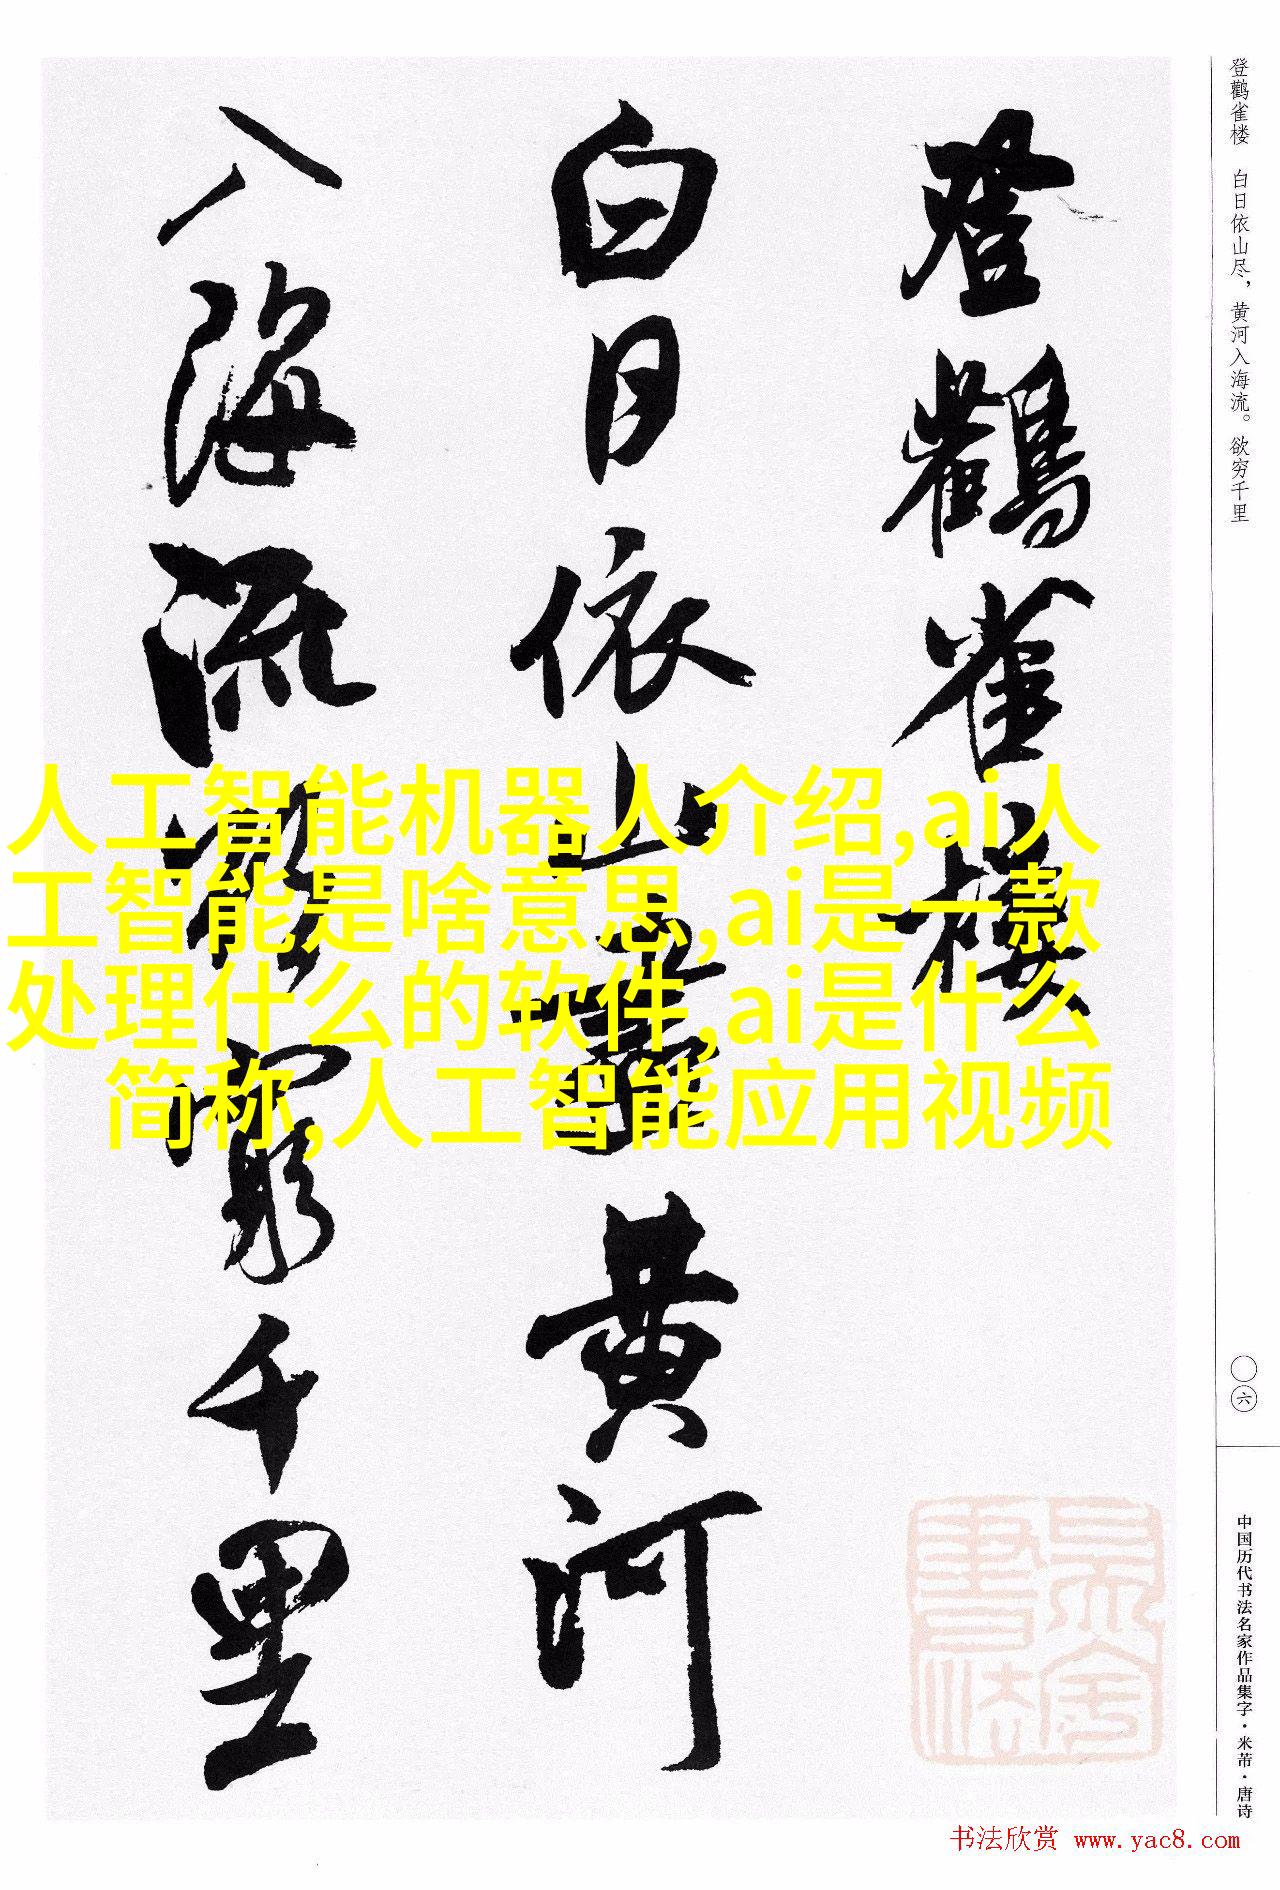 登鸛雀樓
白日依山盡黄河
入海流欲窮千里
人工智能机器人介绍,ai人
工智能是啥意思,ai是一款
处理什么的软件,ai是什么
简称,人工智能应用视频
登鹳雀楼 白日依山尽，黄河入海流。欲穷千里
〇六
中国历代书法名家作品集字·米芾·唐诗
书法欣赏 www.yac8.com